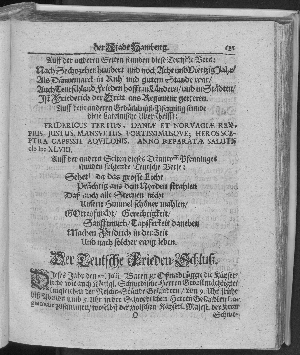 der Stadt Hamburg. 435
Auff der anderen Seiten stunden diese Teutsche Vers:
Nach Sechszehen hundert und noch Acht und Viertzig Jahr/
Als Dännemarck in Ruh und gutem Stande war/
Auch Teutschland Frieden hofft in Ländern/ und in Städten/
Ist Friederich der Dritt ans Regiment getreten.
Auff dem anderen Gedächtnüß-Pfenning stunde
diese Lateinische Uberschrifft:
FRIDERICUS TERTIUS, DANIÆ ET NORVAGIÆ REX,
PIUS, JUSTUS, MANSVETUS, FORTISSIMUSQVE; HEROS SCE-
PTRA CAPESSIT AQVILONIS. ANNO REPARATÆ SALUTIS
XLVIII.
Auff der andern Seiten dieses Pfenninges
stunden folgende Teutsche Verse:
Sehet da das grosse Licht
Prächtig aus dem Norden strahlen
Daß auch alle Sternen nicht
Unsern Himmel schöner mahlen/
Gottesfurcht/ Gerechtigkeit/
Sanfftmuth/ Tapferkeit daneben
Machen Friedrich in der Zeit
Und nach solcher ewig leben.
Der Teutsche Frieden-Schluß.
Dieses Jahr den Julij. Waren zu Oßnabrügge die Kayser-
liche wie auch Königl. Schwedische Herren Gevollmächtigte/
imgleichen der Reichs-Stände Gesandten/ von 9. Uhr frühe
biß Abends umb 5. Uhr in der Schwedischen Herren Gesandten
zusammen/ woselbst der zwischen Kayserl. Majest. der Kron
Schwe-